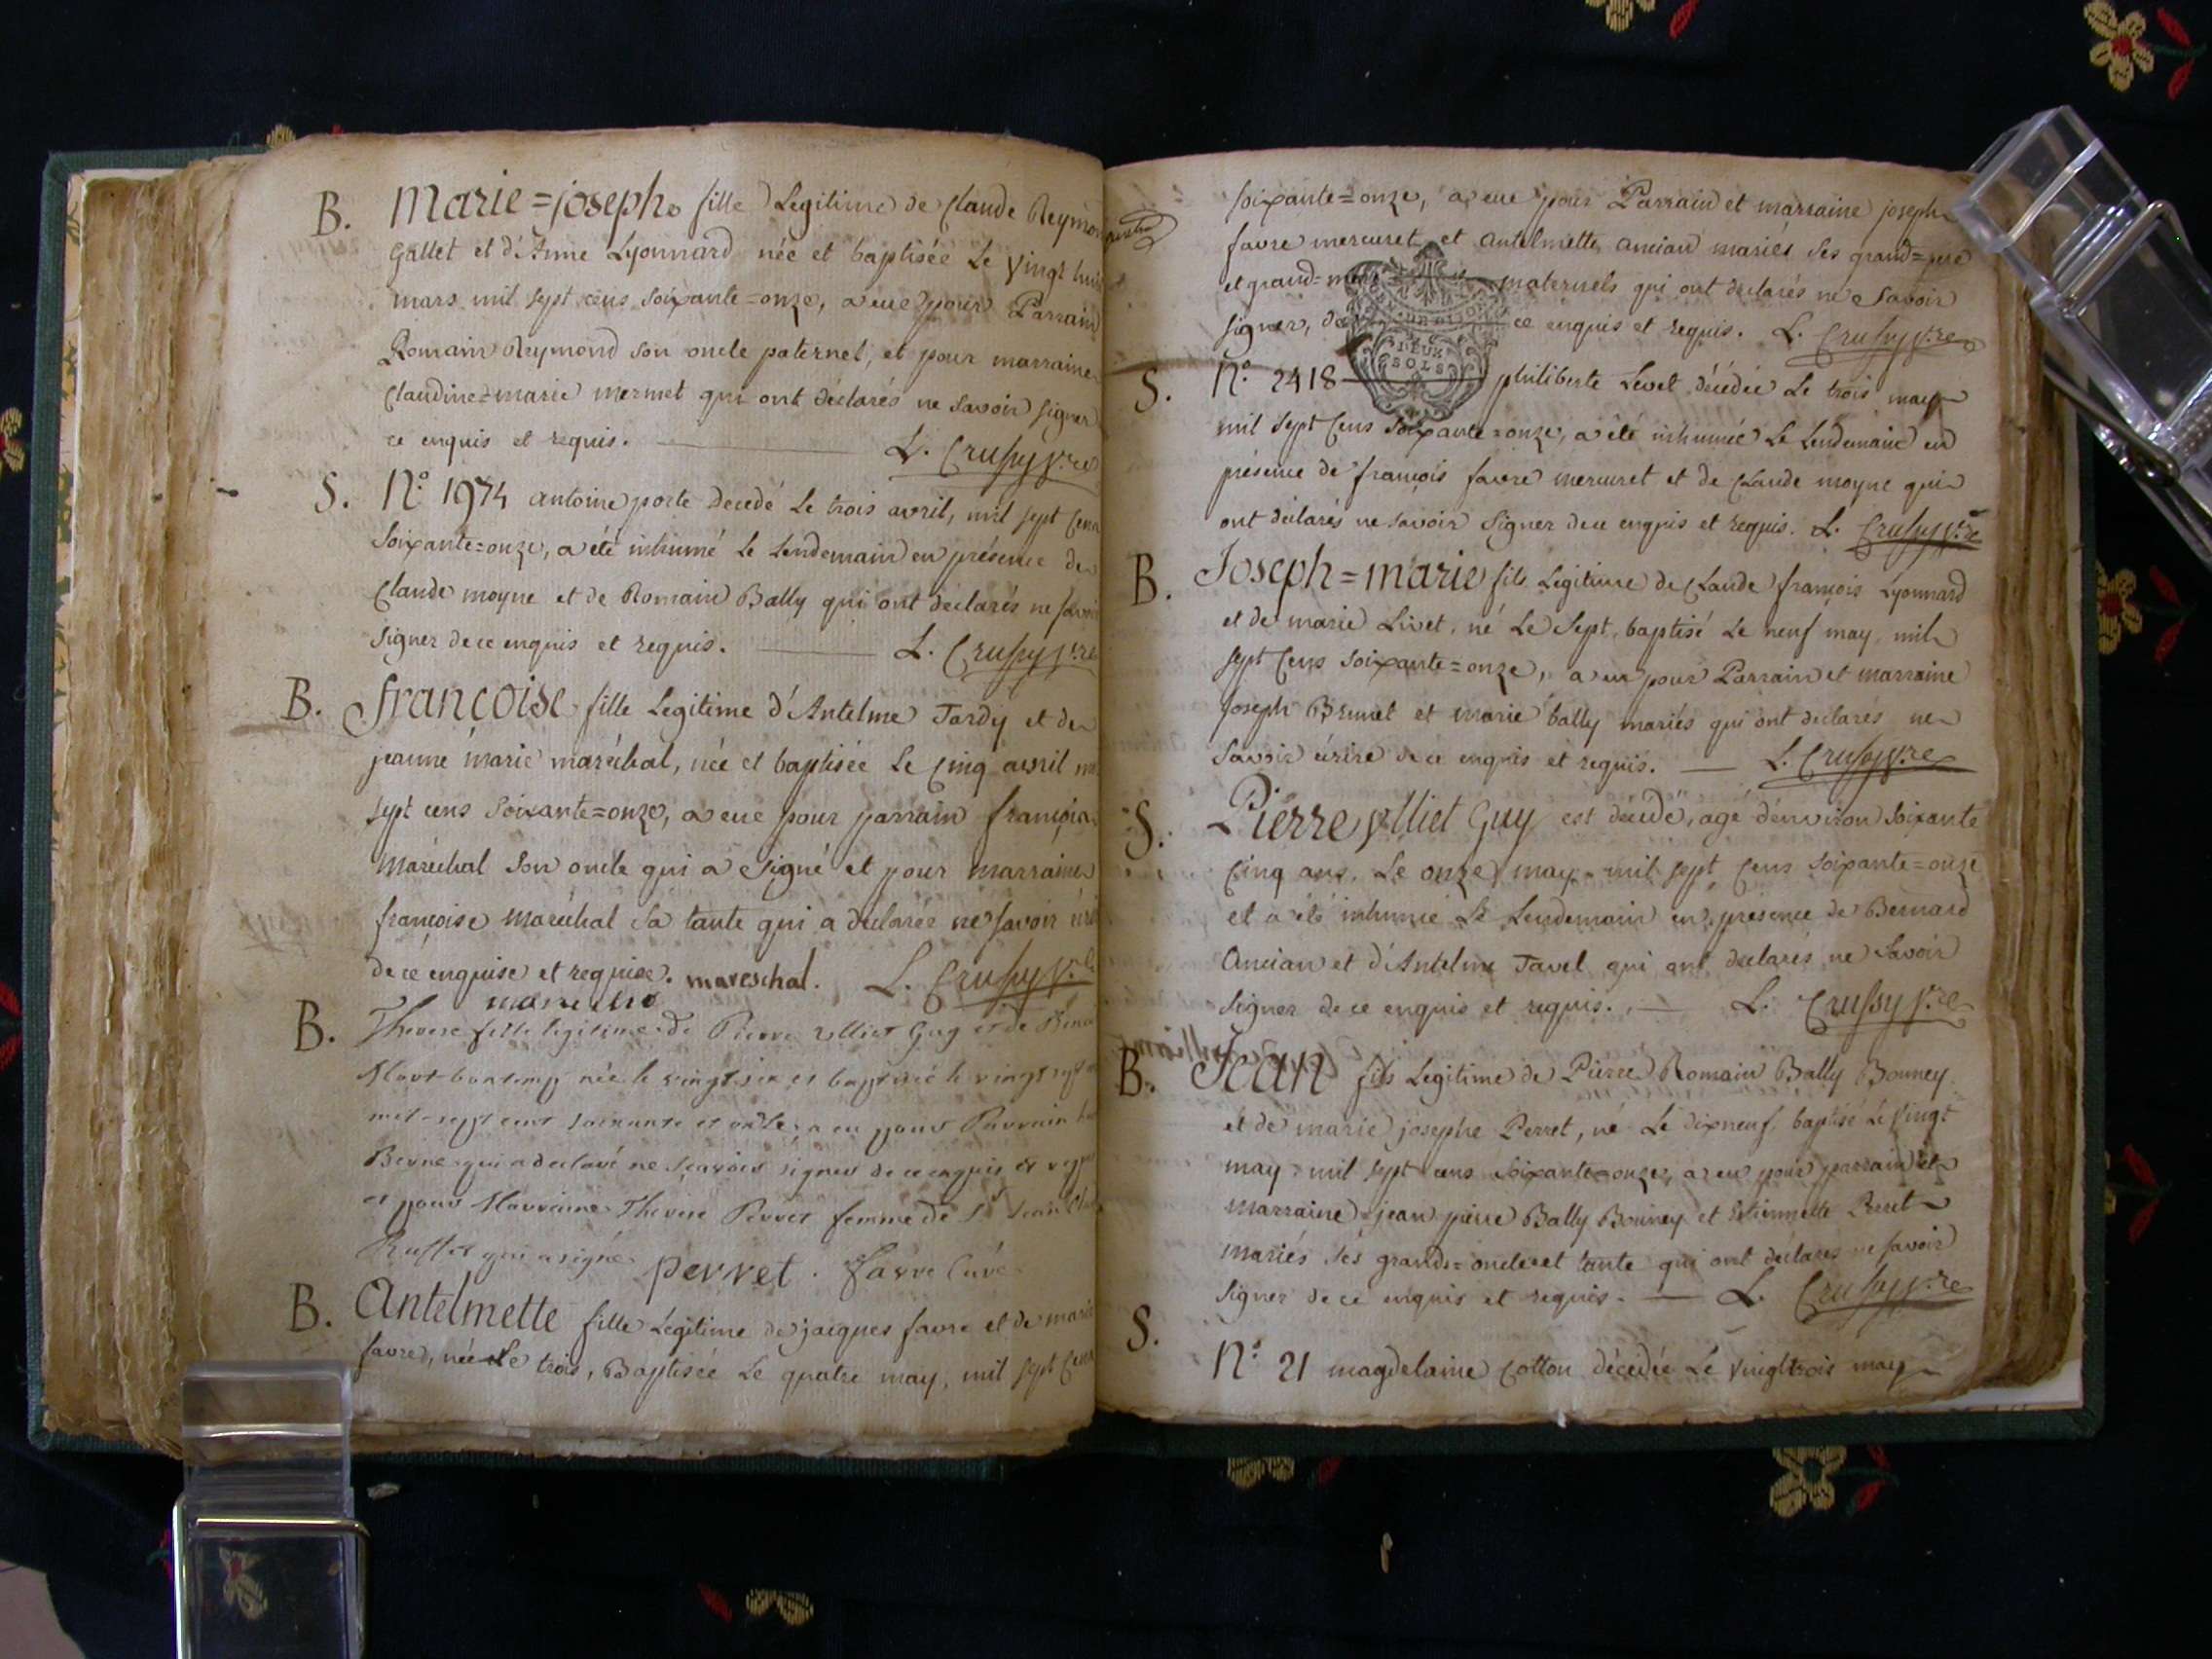 B. Marie=joseph fille Legitime de Claude Reymond
Gallet et d'Anne Lyonnard née et baptisée Le vingt huit
mars mil sept cens soixante=onze, a eue pour Parrain
Romain Reymond son oncle paternel, et pour marraine
Claudine=marie mermet qui ont déclarés ne savoir signer
ce enquis et requis. L. Crussy v.re
S. N.o 1974 antoine porte decedé Le trois avril, mil sept cens
soixante=onze, a été inhumé Le Lendemain en présence de
Claude moyne et de Romain Bally qui ont déclarés ne savoir
signer de ce enquis et requis. L. Crussy v.re
B. françoise fille Legitime d'Antelme Tardy et de
jeanne marie maréchal, née et baptisée Le cinq avril
sept cens soixante=onze, a eue pour parrain françois
maréchal son oncle qui a signé et pour marraine
françoise maréchal sa tante qui a déclarée ne savoir
de ce enquise et requise. mareschal. L. Crussy
B. Therese fille legitime de Pierre ulliet Guy et de
née le vingt six et baptisée le vingt sept
mil sept cent soixante et onze a eu pour Parrain
Berne qui a declaré ne sçavoir signer de ce enquis et
et pour Marraine Therese Perret femme de Sr jean
Ruffet qui a signé. perret. Favre Curé
B. Antelmette fille Legitime de jacques favre et de marie
favre, née Le trois, Baptisée Le quatre may, mil sept cens
soixante=onze, a eue pour Parrain et marraine joseph
favre mercuret et antelmette ancian mariés ses grand=pere
et grand= maternels qui ont déclarés ne savoir
signer, de ce enquis et requis. L. Crussy v.re
DEUX
SOLS
S. N.o 2418 philiberte Levet décédée Le trois may
mil sept cens soixante=onze, a été inhumée Le Lendemain en
présence de françois favre mercuret et de Claude moyne qui
ont déclarés ne savoir signer de ce enquis et requis. L. Crussy v.re
B. Joseph=marie fils Legitime de Claude françois Lyonnard
et de marie Livet, né Le sept, baptisé Le neuf may mil
sept cens soixante=onze, a eu pour Parrain et marraine
joseph Brunet et marie bally mariés qui ont déclarés ne
savoir écrire de ce enquis et requis. L. Crussy v.re
S. Pierre ulliet Guy est décédé, agé d'environ soixante
cinq ans, Le onze may mil sept cens soixante=onze
et a été inhumé Le Lendemain en présence de Bernard
Ancian et d'Antelme Tavel qui ont déclarés ne savoir
signer de ce enquis et requis. L. Crussy v.re
B. Jean fils Legitime de Pierre Romain Bally Bonney
et de marie josephe Perret, né Le dixneuf baptisé Le vingt
may mil sept cens soixante=onze, a eu pour parrain et
marraine jean pierre Bally Bonney et Etiennette Perret
mariés ses grands=oncle et tante qui ont déclarés ne savoir
signer de ce enquis et requis. L. Crussy v.re
S. N.o 21 magdelaine Cotton décédée Le vingt trois may